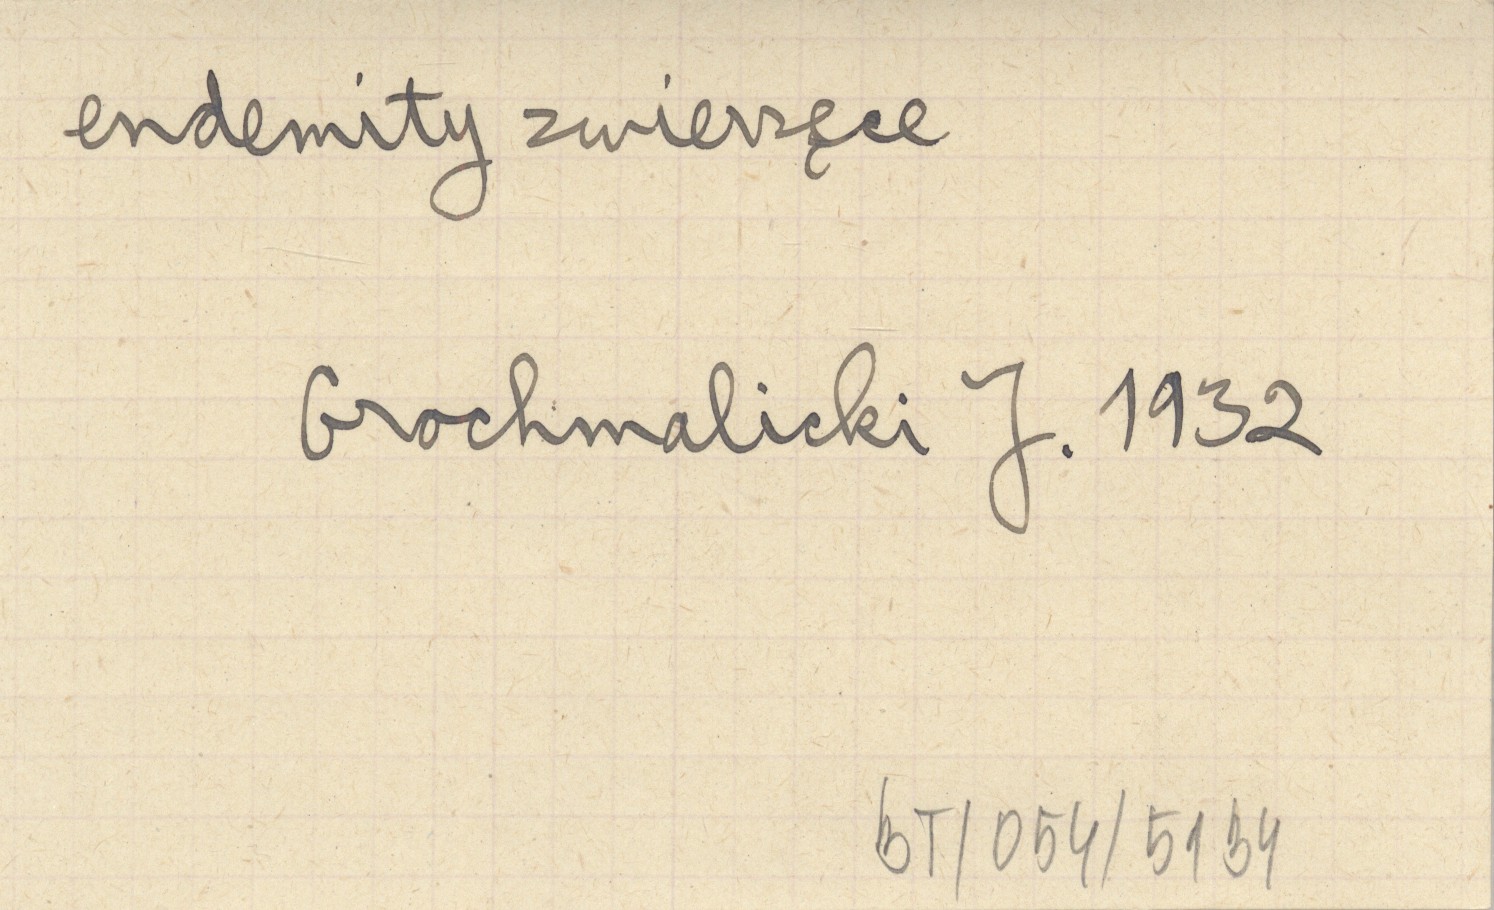 endemity zwierzęce
Grochmalicki J. 1932
BT/054/5134